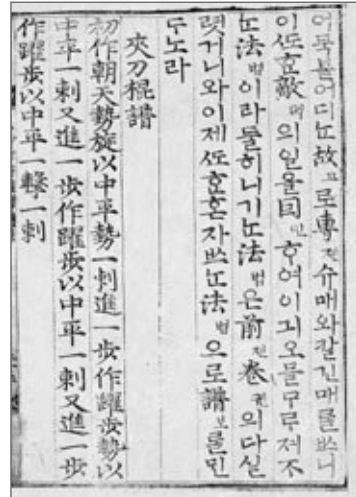 어둑들어디ᄂᆞᆫ故고로專젼슈매와갈긴매를ᄡᅳ니
이ᄯᅩᄒᆞᆫ敵뎍의일을因인ᄒᆞ여이긔오믈구루저不
ᄂᆞᆫ法법이라믈히니기ᄂᆞᆫ法법은前젼卷권의다실
렷거니와이제ᄯᅩᄒᆞᆫ혼자ᄡᅳᄂᆞᆫ法법으로譜보ᄅᆞᆯ민
두노라
夾刀棍譜
初作朝天勢旋以中平勢一刺進一步作躍步勢以
中平一刺又進一步作躍步以中平一刺又進一步
作躍步以中平一擊一刺